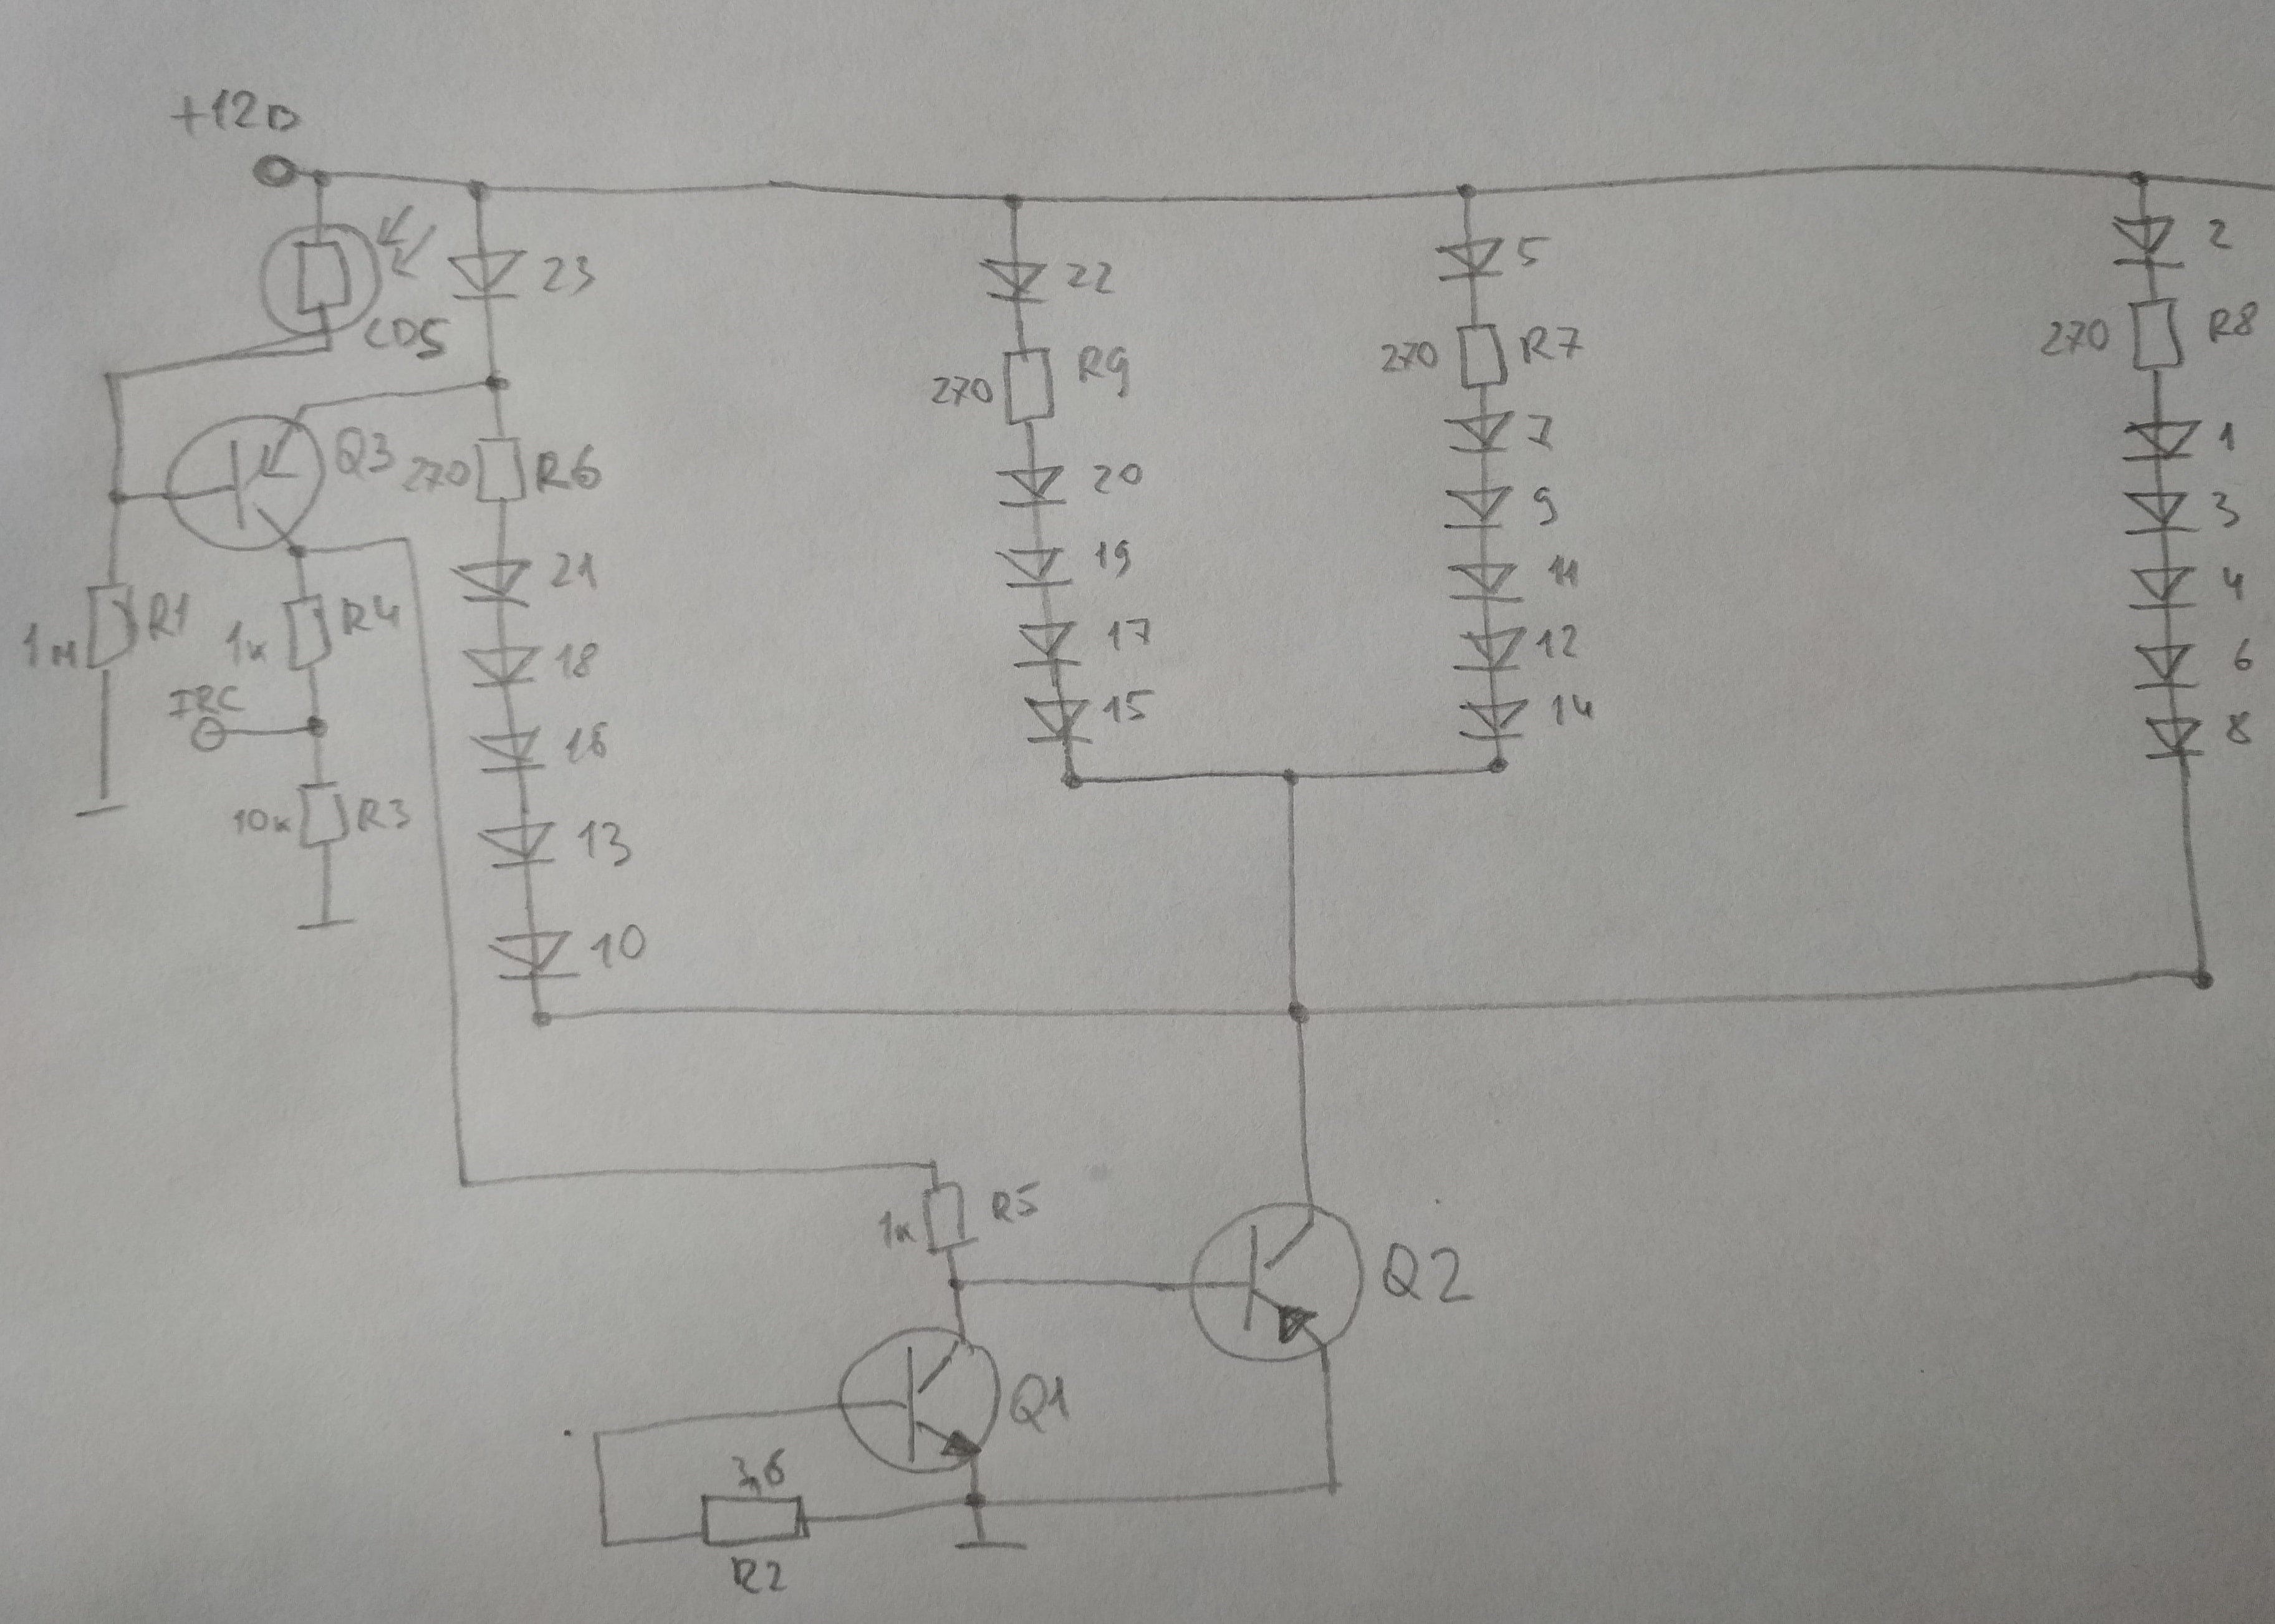 +12в
CDS
23
22
5
2
270
R9
270
R7
270
R8
Q3
270
R6
20
7
1
19
9
3
21
11
4
R1
1м
R4
1к
18
17
12
6
IRC
16
15
14
8
10к
R3
13
10
1к
R5
Q2
Q1
3,6
R2